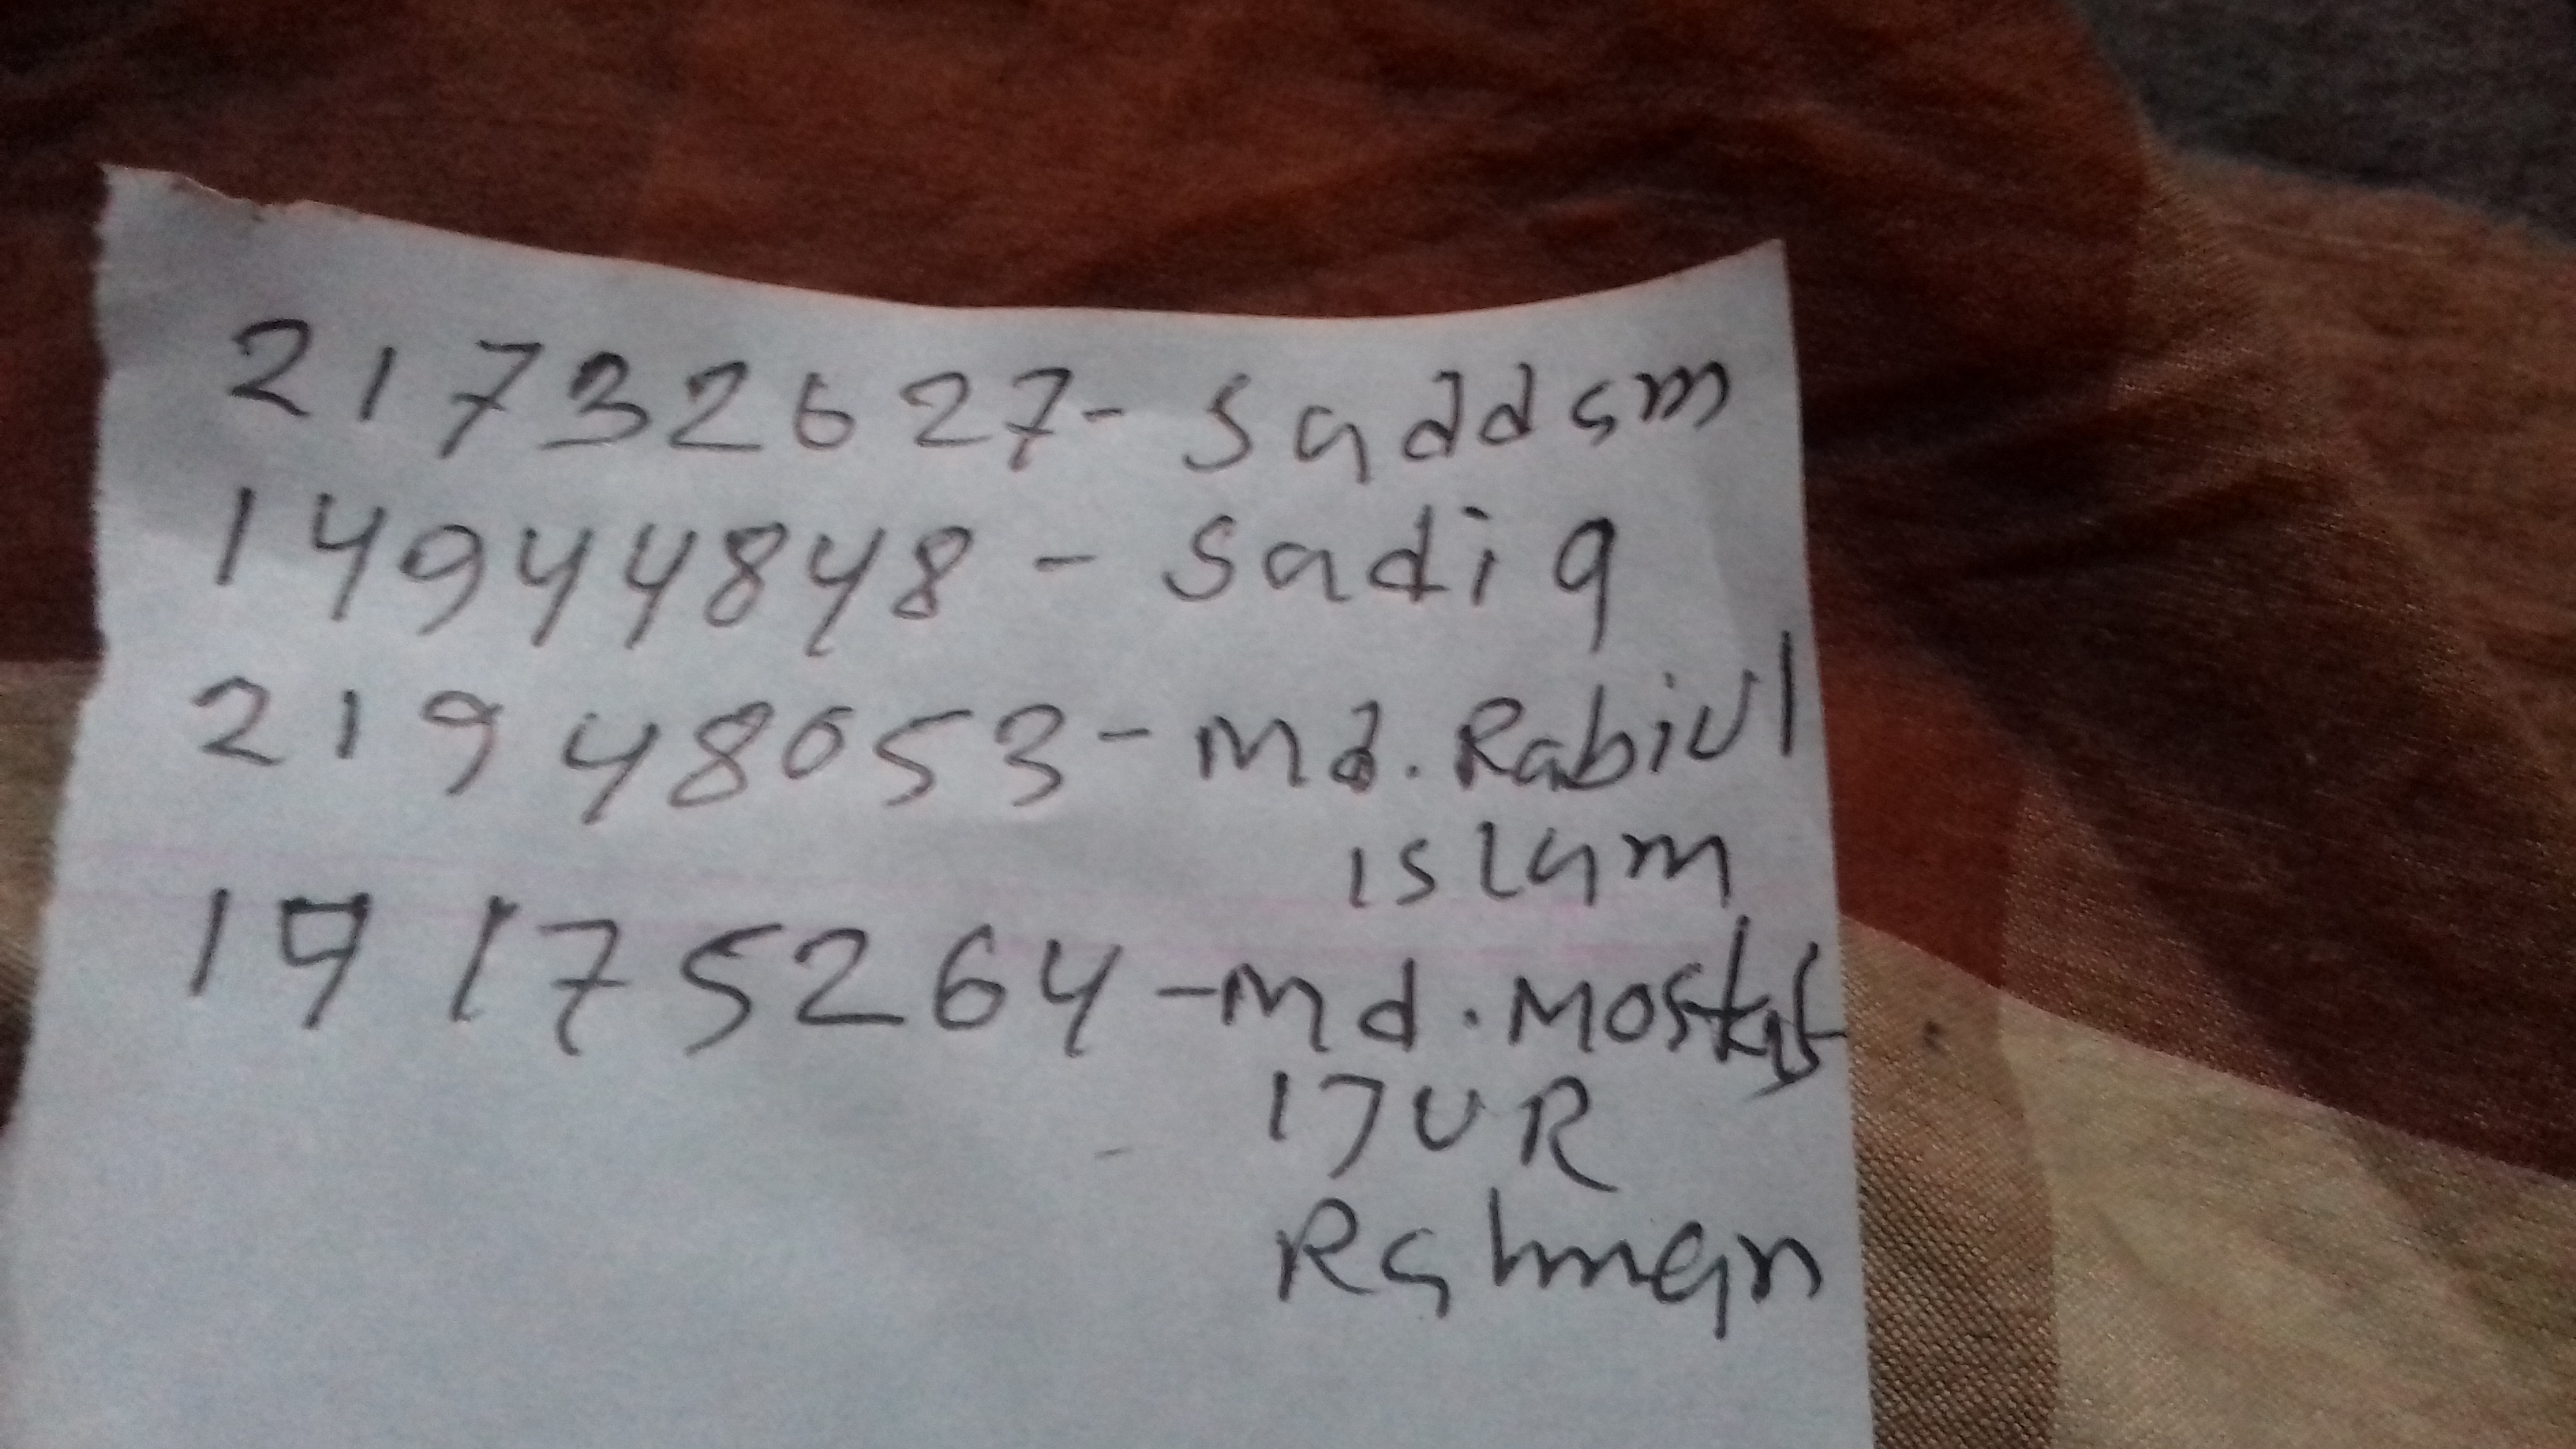 21732627- Saddam
14944848 - Sadiq
21948053 - Md. Rabiul
islam
19175264 - Md. Mostaf
IJUR
Rahman